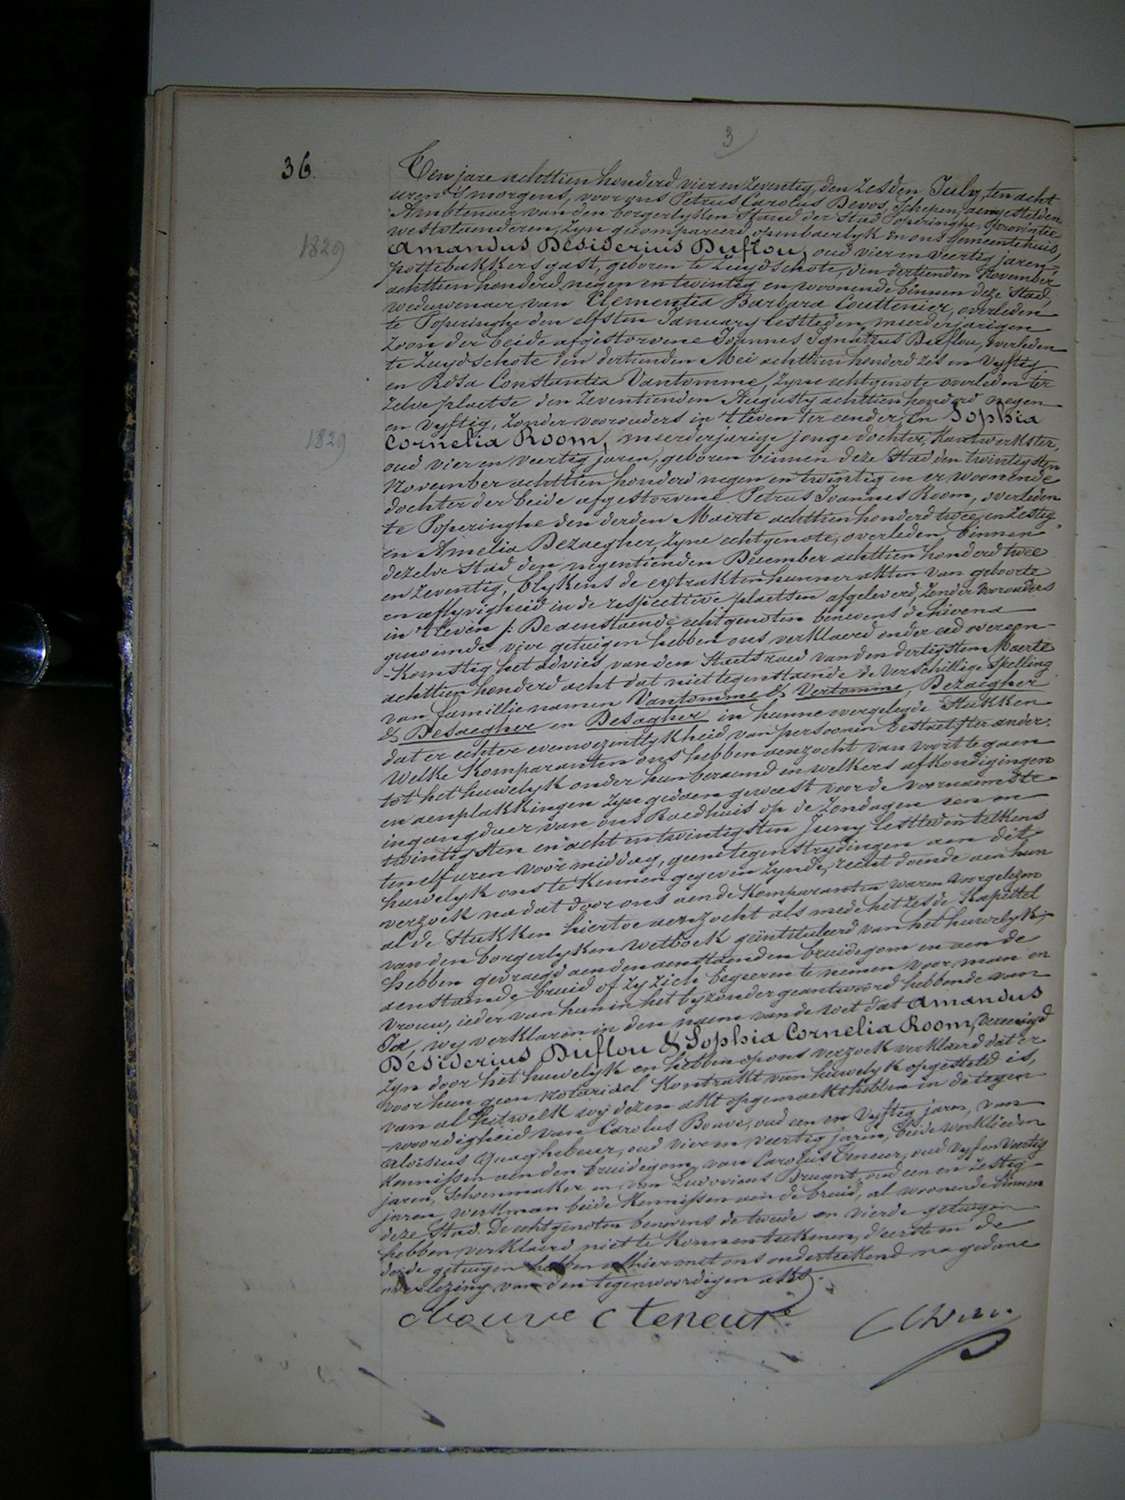 3
36.
Ten jare achttien honderd vier en zeventig, den zesden July, ten acht
uren 's morgens, voor ons Petrus Carolus Devos, Schepen, aengestelden
Ambtenaer van den borgerlyken Stand der Stad Poperinghe, Provintie
westvlaenderen, zyn gecompareerd openbaerlyk in ons Gemeentehuis,
1829
Amandus Desiderius Duflou, oud vier en veertig jaren,
pottebakkersgast, geboren te Zuydschote, den dertienden November
achttien honderd negen en twintig en woonende binnen deze Stad,
weduwenaer van Clementia Barbara Couttenier, overleden
te Poperinghe den elfsten January lestleden, meerderjarigen
zoon der beide afgestorvene Joannes Ignatius Duflou, overleden
te Zuydschote den dertienden Mei achttien honderd zes en vyftig
en Rosa Constantia Vantomme, zyne echtgenote overleden ter
zelve plaetse den zeventienden Augusty achttien honderd negen
en vyftig, zonder voorouders in 't leven ter eender, En Sophia
1829
Cornelia Room, meerderjarige jonge dochter, kantwerkster,
oud vier en veertig jaren, geboren binnen deze Stad den twintigsten
November achttien honderd negen en twintig en er woonende
dochter der beide afgestorvene Petrus Joannes Room, overleden
te Poperinghe den derden Maerte achttien honderd twee en zestig
en Amelia Dezaegher, zyne echtgenote, overleden binnen
dezelve Stad den negentienden December achttien honderd twee
en zeventig, blykens de extrakten hunner akten van geboorte
en aflyvigheid in de respective plaetsen afgeleverd, zonder voorouders
in 't leven /: De aenstaende echtgenoten benevens de hierna
genoemde vier getuigen hebben ons verklaerd onder eed overeen-
-komstig het advies van den Staetsraed van den dertigsten Maerte
achttien honderd acht dat niettegenstaende de verschillige spelling
van famillienamen Vantomme & Vertomme, Dezaegher
& Desaegher en Desagher in hunne voorgelegde stukken
dat er echter evenwezentlykheid van persoonen bestaet, ter ander.
Welke komparanten ons hebben aenzocht van voort te gaen
tot het huwelyk onder hun beraemd en welkers afkondigingen
en aenplakkingen zyn gedaen geweest voor de voornaemste
ingangdeur van ons Raedhuis op de Zondagen een en
twintigsten en acht en twintigsten Juny lestleden telkens
ten elf uren voormiddag, geene tegenstrydingen aen dit
huwelyk ons te kennen gegeven zynde, recht doende aen hun
verzoek na dat door ons aen de komparanten waren voorgelezen
al de stukken hiertoe aenzocht als mede het zesde kapittel
van den borgerlyken wetboek geïntituleerd van het huwelyk;
hebben gevraegd aen den aenstaenden bruidegom en aen de
aenstaende bruid of zy zich begeeren te nemen voor man en
vrouw, ieder van hun in het byzonder geantwoord hebbende van
Ja, wy verklaren in den naem van de wet dat Amandus
Desiderius Duflou & Sophia Cornelia Room, vereenigd
zyn door het huwelyk en hebben op ons verzoek verklaerd dat er
voor hun geen notariael kontrakt van huwelyk opgesteld is,
van al hetwelk wy dezen akt opgemaekt hebben in de tegen
-woordigheid van Carolus Bouve, oud een en vyftig jaren, van
Aloisius Quaghebeur, oud vier en veertig jaren, beide werklieden
kennissen aen den bruidegom, van Carolus Teneur, oud vyf en veertig
jaren, schoenmaker en van Ludovicus Bryant, oud een en zestig
jaren, werkman beide kennissen aen de bruid, al woonende binnen
deze Stad. De echtgenoten benevens de tweede en vierde getuigen
hebben verklaerd niet te konnen teekenen, d'eerste en de
derde getuigen hebben alhier met ons onderteekend na gedane
voorlezing van den tegenwoordigen akt.
cbouve C teneur